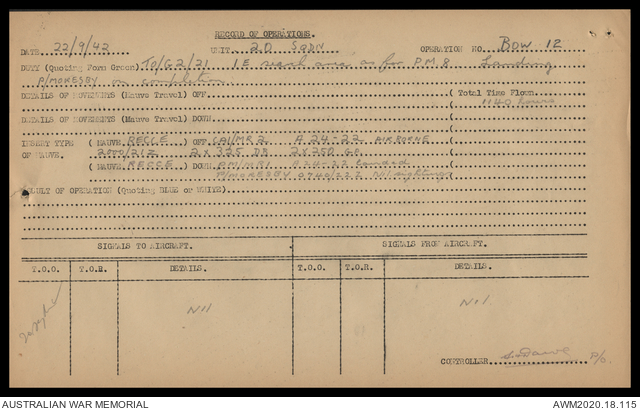 RECORD OF OPERATIONS.
DATE 22/9/42 UNIT 20 SQDN OPERATION NO. BOW 12
DUTY (Quoting Form Green) TO/G2/21 1E search area as for P.M. 8 Landing
P/MORESBY on completion
DETAILS OF MOVEMENTS (Mauve Travel) OFF ( Total Time Flown
( 1140 hours
DETAILS OF MOVEMENTS (Mauve Travel) DOWN (
INSERT TYPE ( MAUVE RECCE ) OFF CAI/MR2 A 24-22 AIRBORNE
OF MAUVE. 2000/21z 2 x 325 DB 2 x 250 G.P.
( MAUVE RECCE ) DOWN A24-22 landed
P/MORESBY 0740/22z Nil sightings
RESULT OF OPERATION (Quoting BLUE or WHITE)
SIGNALS TO AIRCRAFT. SIGNALS FROM AIRCRAFT.
T.O.O. T.O.R. DETAILS. T.O.O. T.O.R. DETAILS.
Nil Nil
CONTROLLER P/O.
AUSTRALIAN WAR MEMORIAL AWM2020.18.115